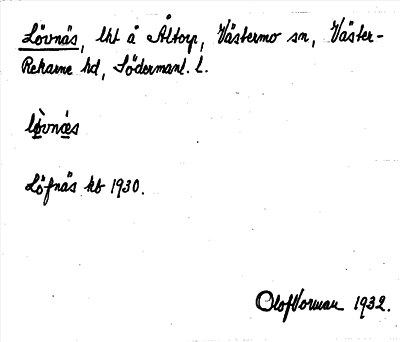 Lövnäs, lht å Åltorp, Västermo sn, Väster-
Rekarne hd, Södermanl. l.
lø̀vnæs
Löfnäs kb 1930.
Olof Vorman 1932.